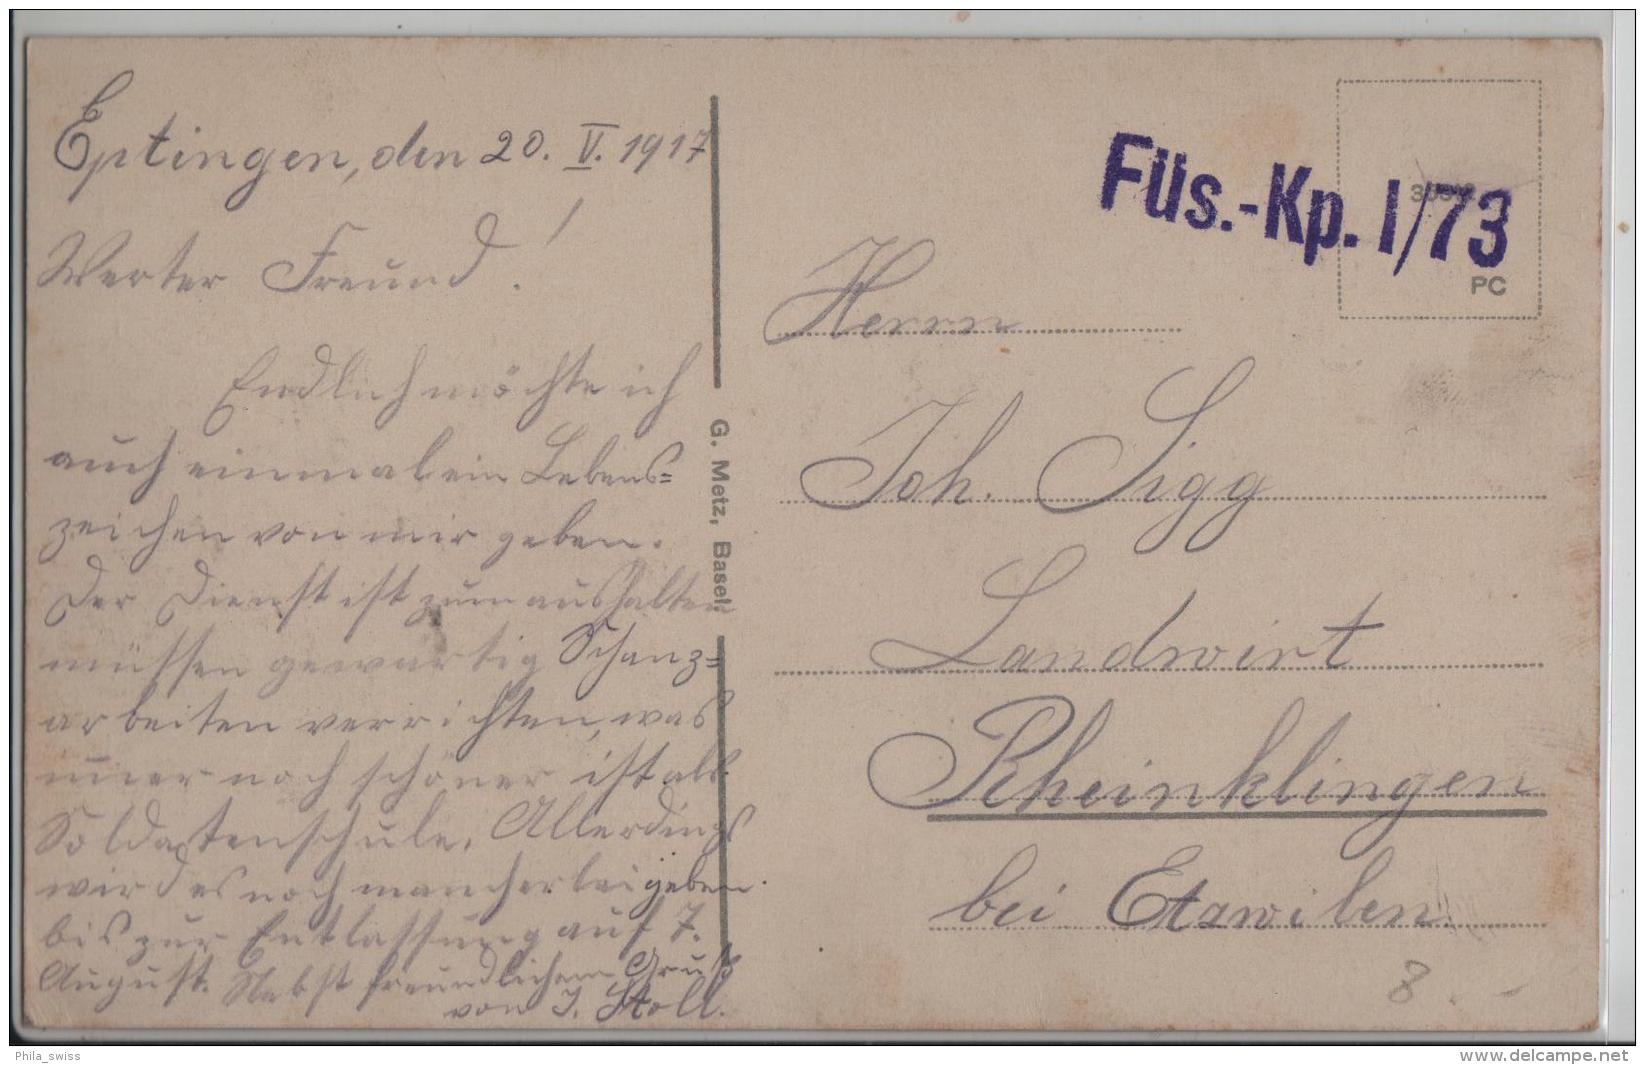 Eptingen, den 20. V. 1917
Werter Freund!
Endlich möchte ich
auch einmal ein Lebens=
zeichen von mir geben.
Der Dienst ist zum aushalten
müssen gewärtig Schanz=
arbeiten verrichten, was
immer noch schöner ist als
Soldatenschule. Allerdings
wird es noch mancherlei geben
bis zur Entlassung auf 7.
August. Nebst freundlichem Gruß
von J. Stoll.
G. Metz, Basel.
Füs.-Kp. I/73
PC
Herrn
Joh. Sigg
Landwirt
Rheinklingen
bei Etzwilen.
8
Phila_swiss
www.delcampe.net